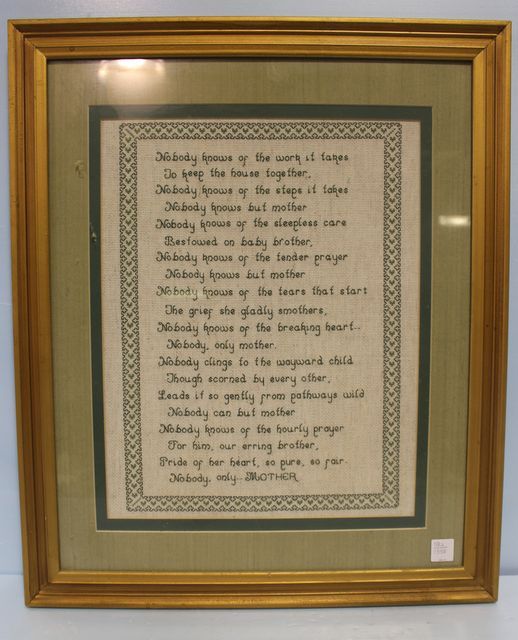 Nobody knows of the work it takes
To keep the house together,
Nobody knows of the steps it takes
Nobody knows but mother
Nobody knows of the sleepless care
Bestowed on baby brother,
Nobody knows of the tender prayer
Nobody knows but mother
Nobody knows of the tears that start
The grief she gladly smothers,
Nobody knows of the breaking heart..
Nobody, only mother.
Nobody clings to the wayward child
Though scorned by every other,
Leads it so gently from pathways wild
Nobody can but mother
Nobody knows of the hourly prayer
For him, our erring brother,
Pride of her heart, so pure, so fair.
Nobody, only.. MOTHER